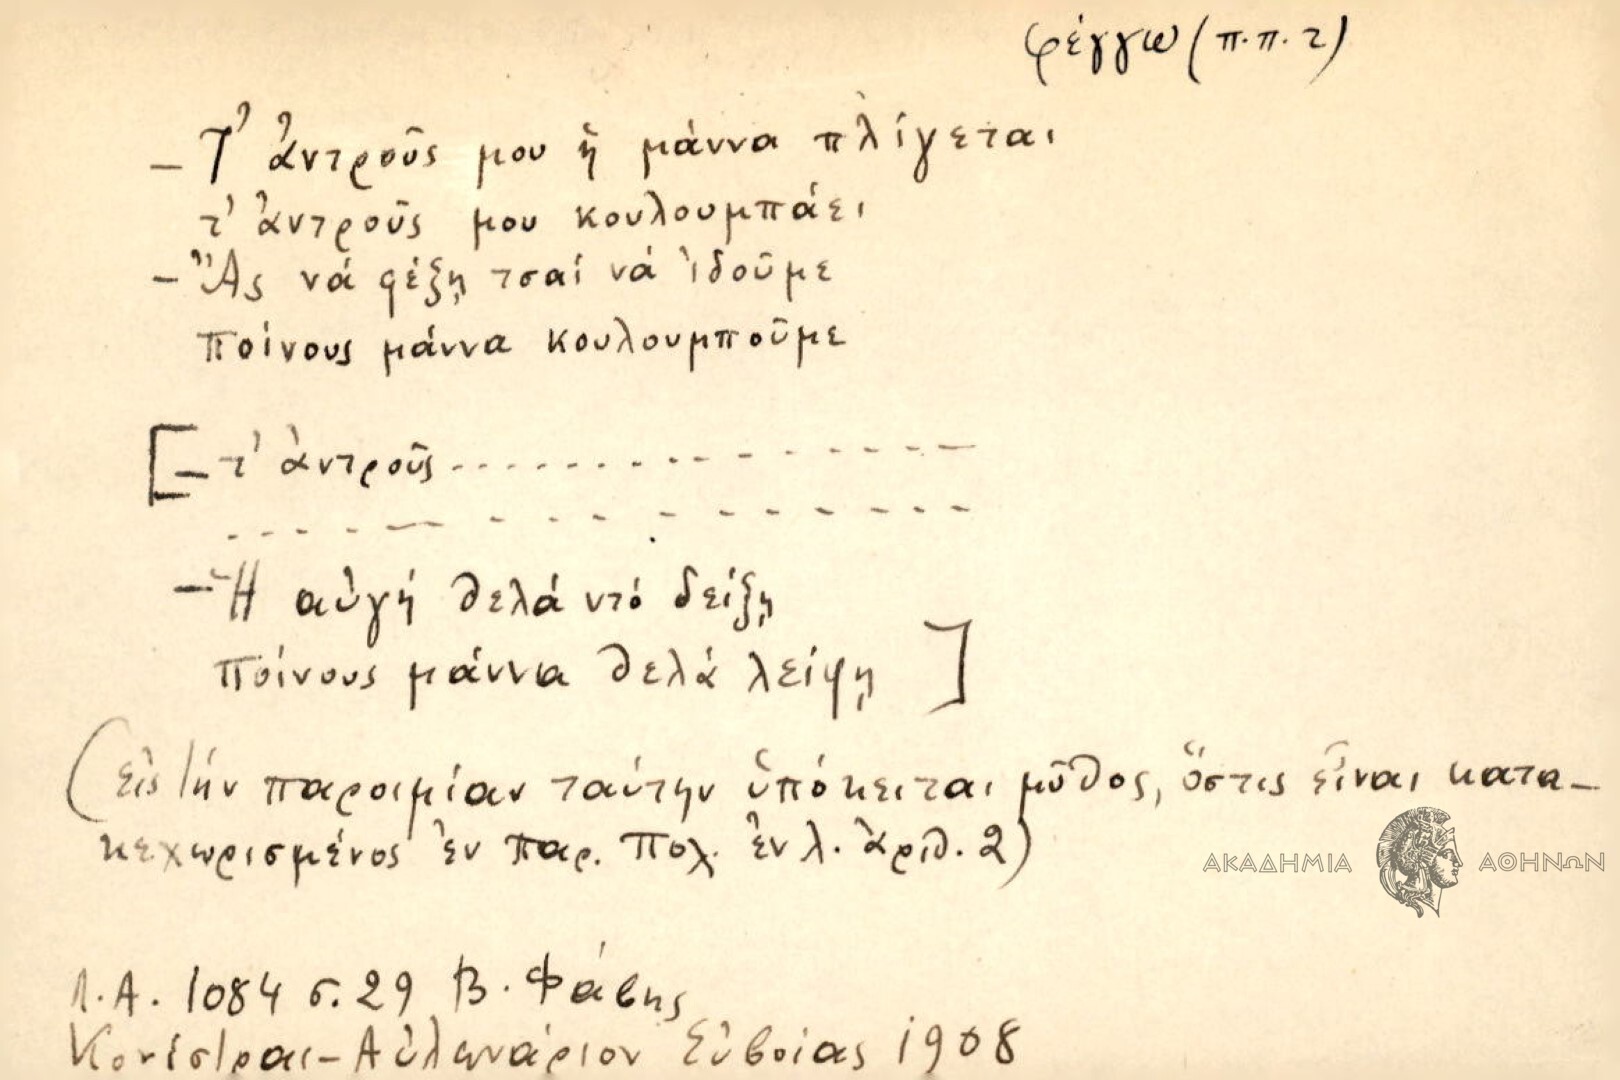 φέγγω (π.π.τ)
– Τ' ἀντροῦς μου ἡ μάννα πλίγεται
τ' ἀντροῦς μου κουλουμπάει
– Ἄς νά φέξῃ τσαί νά ἰδοῦμε
ποίνους μάννα κουλουμποῦμε
[– τ' ἀντροῦς ..... - - - - - - -
- - - - - - - - - - - -
– Ἡ αὐγή θελά ντό δείξῃ
ποίνους μάννα θελά λείψῃ ]
(εἰς τήν παροιμίαν ταύτην ὑπόκειται μῦθος, ὅστις εἶναι κατα-
κεχωρισμένος ἐν Παρ. Πολ. ἐν λ. ἀριθ. 2)
ΑΚΑΔΗΜΙΑ ΑΘΗΝΩΝ
Λ.Α. 1084 σ. 29 Β. Φάβης
Κονίστραι – Αὐλωνάριον Εὐβοίας 1908